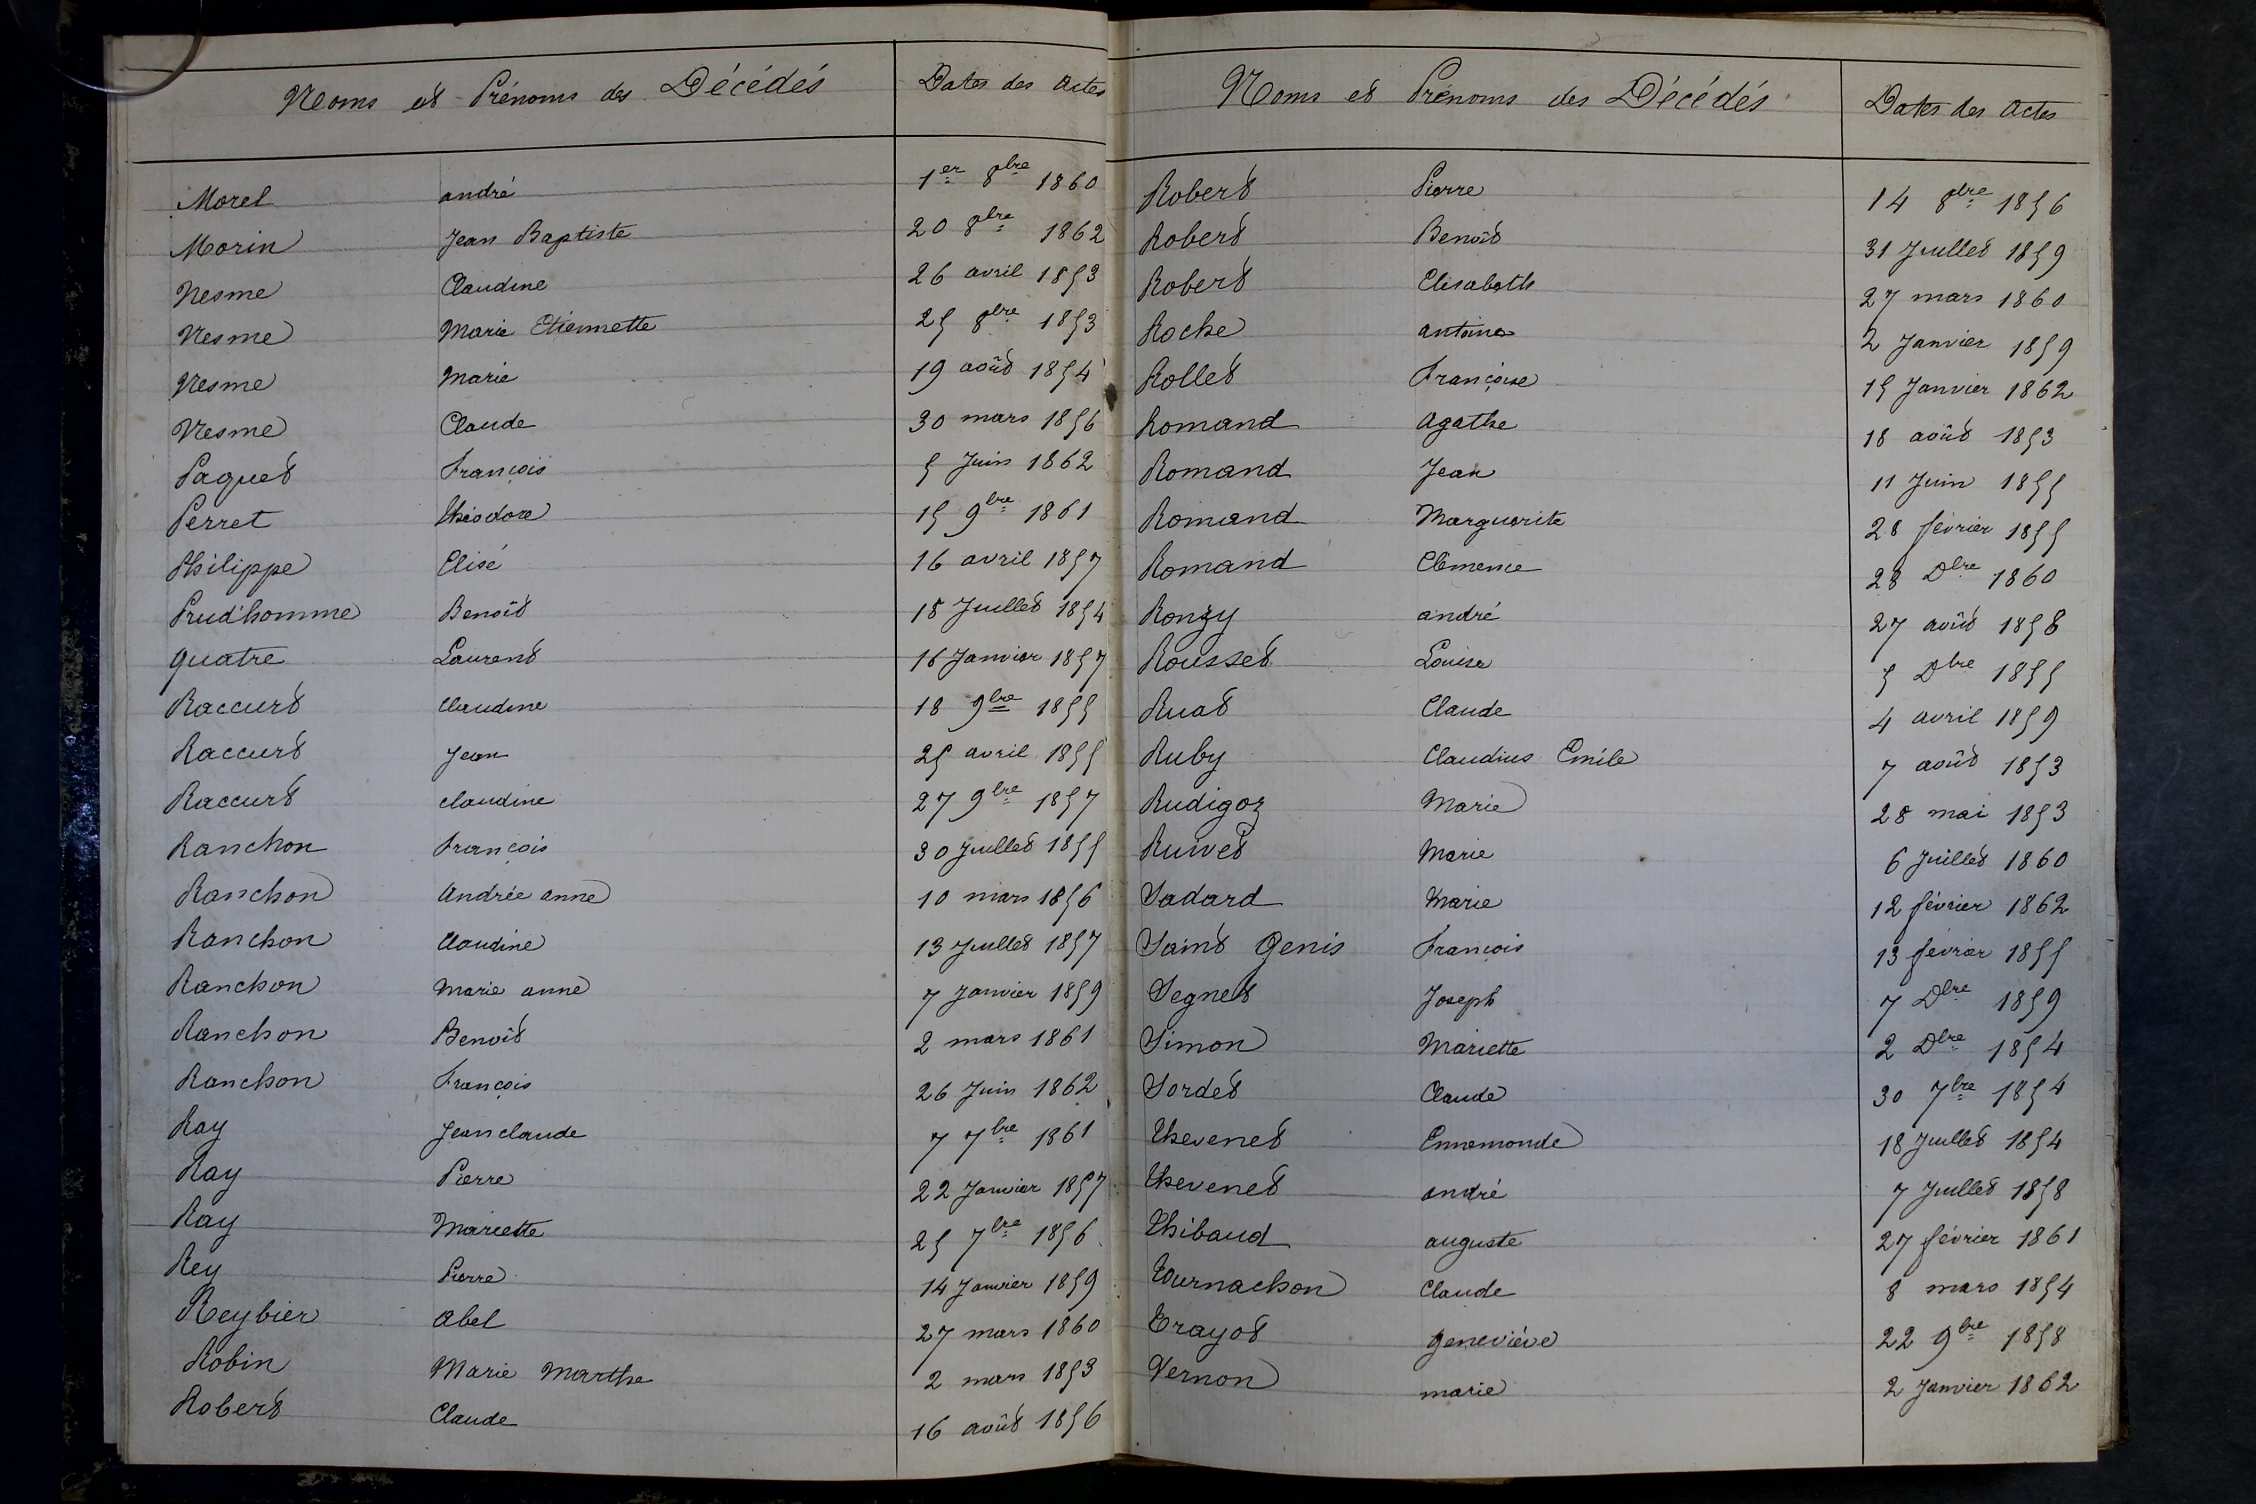 Noms et Prénoms des Décédés Dates des Actes
Morel andré 1er 8bre 1860
Morin Jean Baptiste 20 8bre 1862
Nesme Claudine 26 avril 1853
Nesme Marie Etiennette 25 8bre 1853
Nesme Marie 19 août 1854
Nesme Claude 30 mars 1856
Paquet François 5 Juin 1862
Perret théodore 15 9bre 1861
Philippe Elisé 16 avril 1857
Prud'homme Benoît 18 Juillet 1854
quatre Laurent 16 Janvier 1857
Raccurt Claudine 18 9bre 1855
Raccurt Jean 25 avril 1855
Raccurt claudine 27 9bre 1857
Ranchon François 30 Juillet 1855
Ranchon Andrée anne 10 mars 1856
Ranchon Claudine 13 Juillet 1857
Ranchon Marie anne 7 Janvier 1859
Ranchon Benoît 2 mars 1861
Ranchon François 26 Juin 1862
Ray Jean claude 7 7bre 1861
Ray Pierre 22 Janvier 1857
Ray Mariette 25 7bre 1856
Rey Pierre 14 Janvier 1859
Reybier Abel 27 mars 1860
Robin Marie Marthe 2 mars 1853
Robert Claude 16 août 1856
Noms et Prénoms des Décédés Dates des Actes
Robert Pierre 14 8bre 1856
Robert Benoît 31 Juillet 1859
Robert Elisabeth 27 mars 1860
Roche antoine 2 Janvier 1859
Rollet Françoise 15 Janvier 1862
Romand Agathe 18 août 1853
Romand Jean 11 Juin 1855
Romand Marguerite 28 février 1855
Romand Clémence 28 Dbre 1860
Ronzy andré 27 août 1858
Rousset Louise 5 Dbre 1855
Ruat Claude 4 avril 1859
Ruby Claudius Emile 7 août 1853
Rudigoz Marie 28 mai 1853
Ruivet Marie 6 Juillet 1860
Sadard Marie 12 février 1862
Saint Genis François 13 février 1855
Segnet Joseph 7 Dbre 1859
Simon Mariette 2 Dbre 1854
Sordet Claude 30 7bre 1854
Thevenet Ennemonde 18 Juillet 1854
Thevenet andré 7 Juillet 1858
Thibaud auguste 27 février 1861
Tournachon Claude 8 mars 1854
Trayot geneviève 22 9bre 1858
Vernon marie 2 Janvier 1862